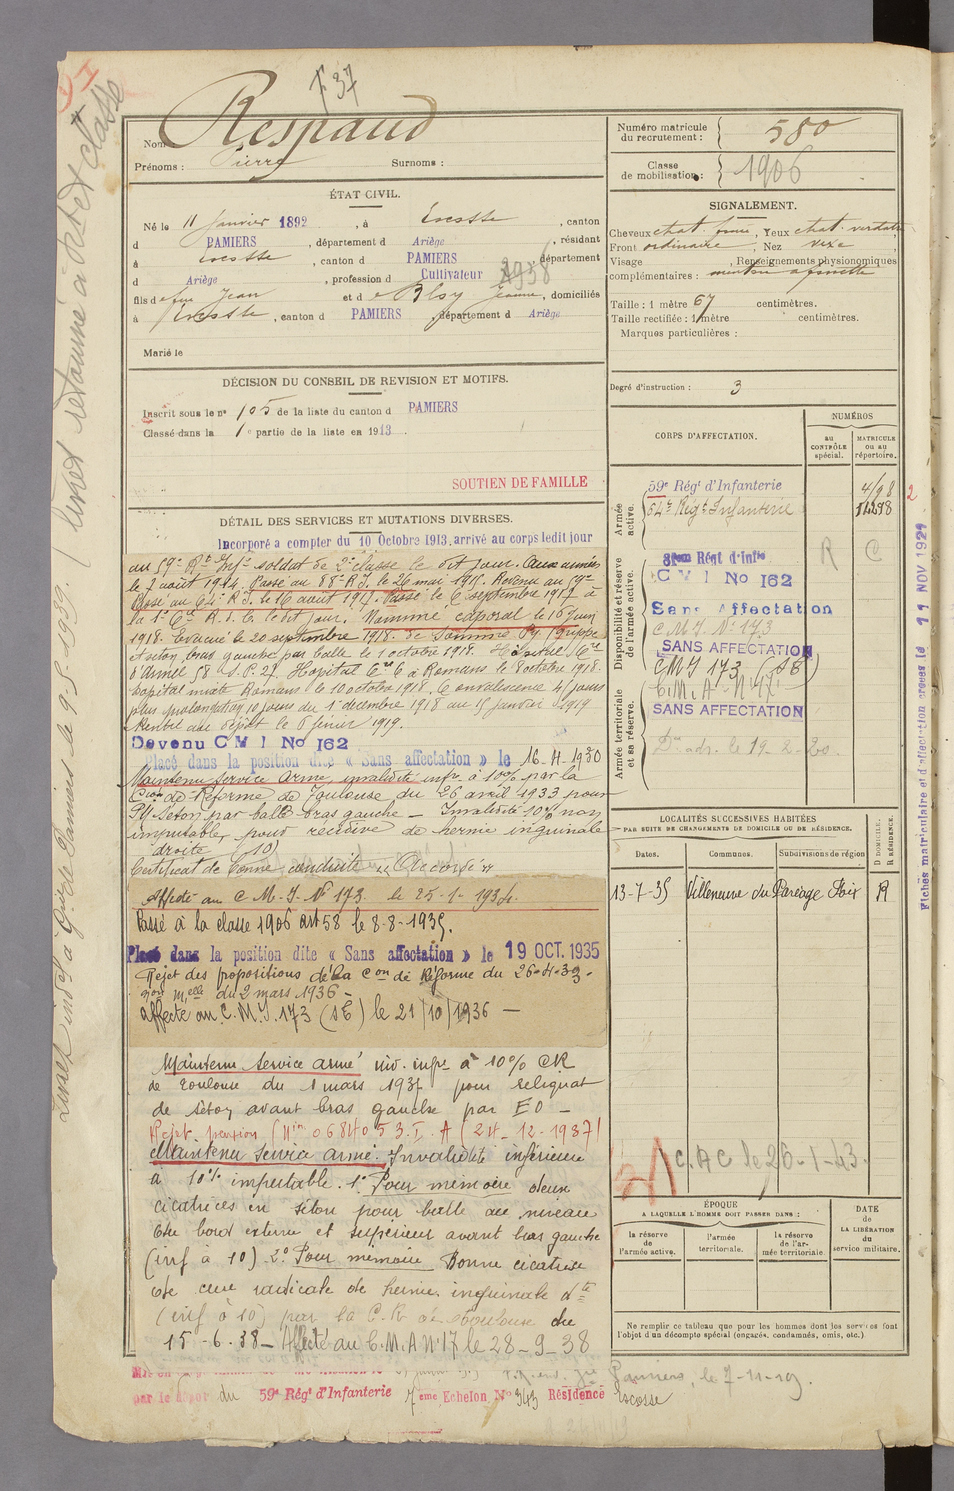 F 37
Nom Respaud
Prénoms : Pierre Surnoms :
ÉTAT CIVIL.
Né le 11 Janvier 1892, à Escosse, canton
d PAMIERS, département d Ariège, résidant
à Escosse, canton d PAMIERS, département
d Ariège, profession d Cultivateur 1938
fils de feu Jean et de Jeanne, domiciliés
à Escosse, canton d PAMIERS, département d Ariège
Marié le
DÉCISION DU CONSEIL DE REVISION ET MOTIFS.
Inscrit sous le n° 105 de la liste du canton d PAMIERS
Classé dans la 1e partie de la liste en 1913.
SOUTIEN DE FAMILLE
DÉTAIL DES SERVICES ET MUTATIONS DIVERSES.
Incorporé a compter du 10 Octobre 1913, arrivé au corps ledit jour
au 59e Rt Infie soldat de 2e classe le dit jour. Aux armées
le 2 août 1914. Passé au 88e R.I. le 26 mai 1915. Revenu au 59e
Passé au 64e R.I. le 16 août 1917. Passé le 6 septembre 1917 à
la 1e Cie R.I.C. le dit jour. Nommé caporal le 16 juin
1918. Evacué le 20 septembre 1918. de Somme Py. Grippe
et séton bras gauche par balle le 1 octobre 1918. Hôpital
d'Armée 58 S.P. 27. Hôpital Cre 6 à Romans le 8 octobre 1918.
hôpital mixte Romans le 10 octobre 1918. Convalescence 45 jours
plus prolongation 10 jours du 1er décembre 1918 au 15 janvier 1919
Rentré au dépôt le 6 février 1919.
Devenu CMI No 162
Placé dans la position dite « Sans affectation » le 16-4-1930
Maintenu Service Armé, invalidité infre à 10% par la
Con de Réforme de Toulouse du 26 avril 1933 pour
Séton par balle bras gauche — Invalidité 10% non
imputable, pour récidive de hernie inguinale
droite (10)
Certificat de bonne conduite « Accordé »
Affecté au C.M.I. N° 173 le 25-1-1934.
Passé à la classe 1906 art 58 le 8-8-1935.
Placé dans la position dite « Sans affectation » le 19 OCT. 1935
Rejet des propositions de la Con de Réforme du 26-4-33.
Mielle du 2 mars 1936 —
affecté au C.M.I. 173 (SE) le 21/10/1936 —
Maintenu service armé inv. infre à 10% CR
de Toulouse du 1 mars 1937 pour reliquat
de séton avant bras gauche par EO —
Rejet pension
Maintenu Service armé. Invalidité inférieure
à 10% imputable. 1° Pour mémoire deux
cicatrices en séton pour balle au niveau
du bord externe et supérieur avant bras gauche
(inf à 10) 2° Pour mémoire Bonne cicatrice
de cure radicale de hernie inguinale dte
(inf à 10) par la C.R. de Toulouse du
15-6-38 — Affecté au C.M.A N° 17 le 28-9-38
par le dépôt du 59e Régt d'Infanterie 7ème Echelon N° 343 Résidence Escosse
Pamiers, le 7-11-19.
Numéro matricule
du recrutement : 580
Classe
de mobilisation : 1906
SIGNALEMENT.
Cheveux chat. foncé, Yeux chat. verdâtre,
Front ordinaire, Nez vexe
Visage , Renseignements physionomiques
complémentaires : menton à fossette
Taille : 1 mètre 67 centimètres.
Taille rectifiée : 1 mètre centimètres.
Marques particulières :
Degré d'instruction : 3
CORPS D'AFFECTATION.
NUMÉROS
au CONTRÔLE spécial.
MATRICULE ou au répertoire.
Armée active.
59e Régt d'Infanterie
64e Régt Infanterie
Disponibilité et réserve de l'armée active.
R C
CMI No 162
Sans Affectation
C.M.I. N° 173
SANS AFFECTATION
CMI 173 (SE)
C.M.A. N° 17
SANS AFFECTATION
Armée territoriale et sa réserve.
LOCALITÉS SUCCESSIVES HABITÉES
PAR SUITE DE CHANGEMENTS DE DOMICILE OU DE RÉSIDENCE.
Dates. Communes. Subdivisions de région
D DOMICILE. R RÉSIDENCE.
13-7-35 Villeneuve du Paréage Foix R
C.A.C le 26-1-43.
ÉPOQUE
A LAQUELLE L'HOMME DOIT PASSER DANS :
la réserve de l'armée active.
l'armée territoriale.
la réserve de l'armée territoriale.
DATE
de
LA LIBÉRATION
du
service militaire.
Ne remplir ce tableau que pour les hommes dont les services font
l'objet d'un décompte spécial (engagés, condamnés, omis, etc.)
Fiches matriculaire et d'affectation créées le 11 NOV 1929